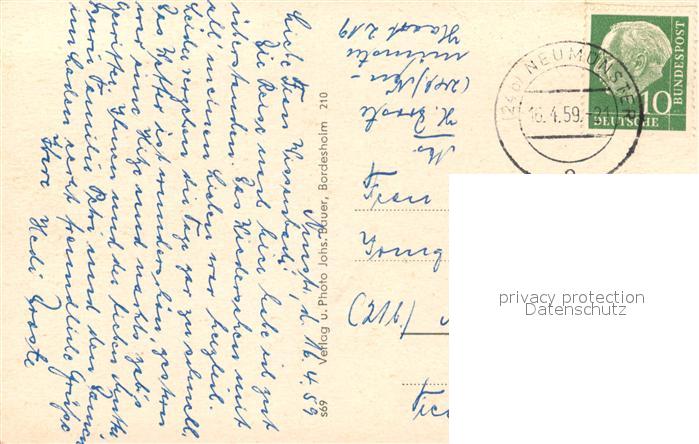 Neumünster, d. 16.4.59
Liebe Frau
Die Reise und hier habe ich gut
überstanden. Das Wiedersehen mit
all meinen Lieben war herzlich.
Leider vergehen die Tage gar zu schnell.
Das Wetter ist wunderschön, gestern
war eine Hitze und nachts gab's
Gewitter. Ihnen und der lieben
Familie Petri und den
im Laden recht freundliche Grüße
Ihre Hedi Droste
s69 Verlag u. Photo Johs. Bauer, Bordesholm 210
Abs.
H. Droste
(24b) Neu-
münster
Haart 219
(24b) NEUMÜNSTER
16.4.59.-21
DEUTSCHE
BUNDESPOST
10
Frau
(21b)
privacy protection
Datenschutz